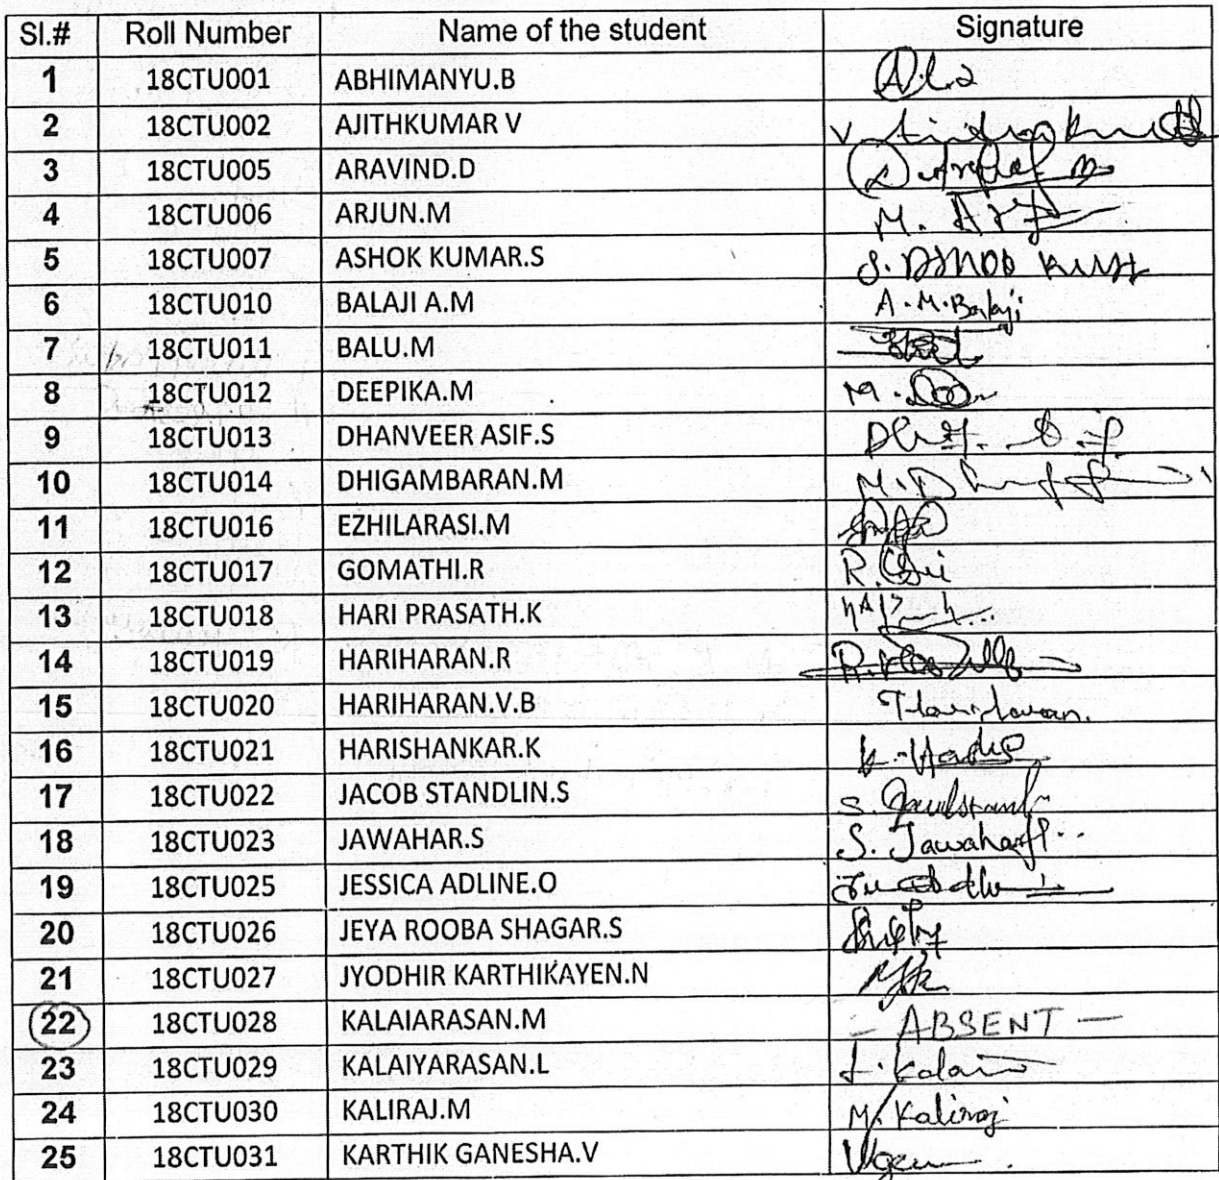 Sl.# Roll Number Name of the student Signature
1 18CTU001 ABHIMANYU.B
2 18CTU002 AJITHKUMAR V
3 18CTU005 ARAVIND.D
4 18CTU006 ARJUN.M
5 18CTU007 ASHOK KUMAR.S
6 18CTU010 BALAJI A.M A.M.Balaji
7 18CTU011 BALU.M
8 18CTU012 DEEPIKA.M
9 18CTU013 DHANVEER ASIF.S
10 18CTU014 DHIGAMBARAN.M
11 18CTU016 EZHILARASI.M
12 18CTU017 GOMATHI.R
13 18CTU018 HARI PRASATH.K
14 18CTU019 HARIHARAN.R
15 18CTU020 HARIHARAN.V.B Hariharan.
16 18CTU021 HARISHANKAR.K
17 18CTU022 JACOB STANDLIN.S
18 18CTU023 JAWAHAR.S S. Jawahar
19 18CTU025 JESSICA ADLINE.O
20 18CTU026 JEYA ROOBA SHAGAR.S
21 18CTU027 JYODHIR KARTHIKAYEN.N
22 18CTU028 KALAIARASAN.M - ABSENT -
23 18CTU029 KALAIYARASAN.L
24 18CTU030 KALIRAJ.M M. Kaliraj
25 18CTU031 KARTHIK GANESHA.V